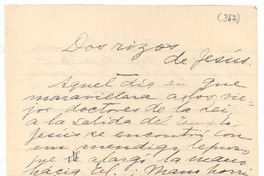 (362)
Dos rizos
de Jesús.
Aquel día en que
maravillara a los vie-
jos doctores de la Ley
a la salida del
Jesús se encontró con
un mendigo leproso
que alargó la mano
hacia El. ¡Mano horri